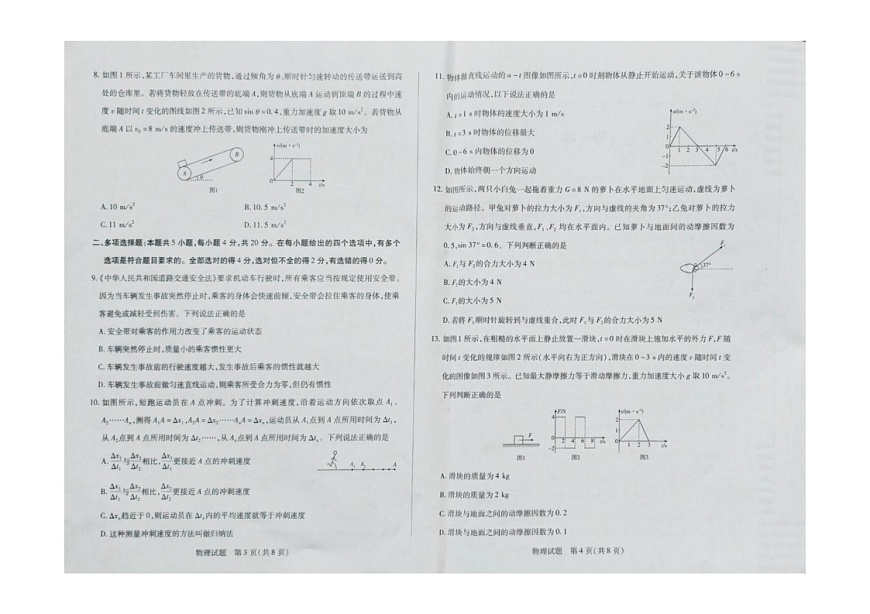 8. 如图1所示,某工厂车间里生产的货物,通过倾角为θ、顺时针匀速转动的传送带运送到高
处的仓库里。若将货物轻放在传送带的底端A,则货物从底端A运动到顶端B的过程中速
度v随时间t变化的图线如图2所示,已知sin θ=0.4,重力加速度g取10 m/s²。若货物从
底端A以v₀=8 m/s的速度冲上传送带,则货物刚冲上传送带时的加速度大小为
B
A
θ
图1
v/(m·s⁻¹)
4
0
2
4
t/s
图2
A. 10 m/s²
B. 10.5 m/s²
C. 11 m/s²
D. 11.5 m/s²
二、多项选择题:本题共5小题,每小题4分,共20分。在每小题给出的四个选项中,有多个
选项是符合题目要求的。全部选对的得4分,选对但不全的得2分,有选错的得0分。
9.《中华人民共和国道路交通安全法》要求机动车行驶时,所有乘客应当按规定使用安全带。
因为当车辆发生事故突然停止时,乘客的身体会快速前倾,安全带会拉住乘客的身体,使乘
客避免或减轻受到伤害。下列说法正确的是
A. 安全带对乘客的作用力改变了乘客的运动状态
B. 车辆突然停止时,质量小的乘客惯性更大
C. 车辆发生事故前的行驶速度越大,发生事故后乘客的惯性就越大
D. 车辆发生事故前做匀速直线运动,则乘客所受合力为零,但仍有惯性
10. 如图所示,短跑运动员在A点冲刺。为了计算冲刺速度,沿着运动方向依次取点A₁、
A₂……Aₙ,测得A₁A=Δx₁,A₂A=Δx₂……AₙA=Δxₙ,运动员从A₁点到A点所用时间为Δt₁,
从A₂点到A点所用时间为Δt₂……,从Aₙ点到A点所用时间为Δtₙ。下列说法正确的是
A. Δx₁/Δt₁与Δx₂/Δt₂相比,Δx₁/Δt₁更接近A点的冲刺速度
B. Δx₁/Δt₁与Δx₂/Δt₂相比,Δx₂/Δt₂更接近A点的冲刺速度
A₁ A₂ A
C. Δxₙ趋近于0,则运动员在Δtₙ内的平均速度就等于冲刺速度
D. 这种测量冲刺速度的方法叫做归纳法
物理试题 第3页(共8页)
11. 物体做直线运动的a-t图像如图所示,t=0时刻物体从静止开始运动,关于该物体0~6 s
内的运动情况,以下说法正确的是
A. t=1 s时物体的速度大小为1 m/s
B. t=3 s时物体的位移最大
C. 0~6 s内物体的位移为0
D. 物体始终朝一个方向运动
2
1
0
-1
-2
1 2 3 4 5 6 t/s
12. 如图所示,两只小白兔一起拖着重力G=8 N的萝卜在水平地面上匀速运动,虚线为萝卜
的运动路径。甲兔对萝卜的拉力大小为F₁,方向与虚线的夹角为37°;乙兔对萝卜的拉力
大小为F₂,方向与虚线垂直,F₁、F₂均在水平面内。已知萝卜与地面间的动摩擦因数为
0.5,sin 37°=0.6。下列判断正确的是
A. F₁与F₂的合力大小为4 N
B. F₁的大小为4 N
C. F₁的大小为5 N
D. 若将F₁顺时针旋转到与虚线重合,此时F₁与F₂的合力大小为5 N
F₁
37°
F₂
13. 如图1所示,在粗糙的水平面上静止放置一滑块,t=0时在滑块上施加水平的外力F,F随
时间t变化的规律如图2所示(水平向右为正方向),滑块在0~3 s内的速度v随时间t变
化的图像如图3所示。已知最大静摩擦力等于滑动摩擦力,重力加速度大小g取10 m/s²。
下列判断正确的是
F
图1
F/N
4
0
-2
2 4 6 8 t/s
图2
v/(m·s⁻¹)
2
1
0
1 2 3 t/s
图3
A. 滑块的质量为4 kg
B. 滑块的质量为2 kg
C. 滑块与地面之间的动摩擦因数为0.2
D. 滑块与地面之间的动摩擦因数为0.1
物理试题 第4页(共8页)